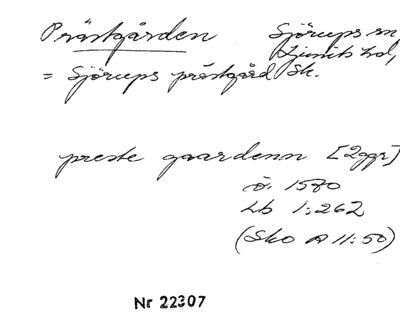 Prästgården Sjörups sn,
Ljunits hd,
= Sjörups prästgård Sk.
preste gaardenn [2ggr]
o. 1570
Lb 1:262
(Sko A II:50)
Nr 22307